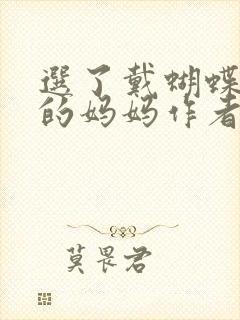 選了戴蝴蝶
的妈妈作者
莫畏君